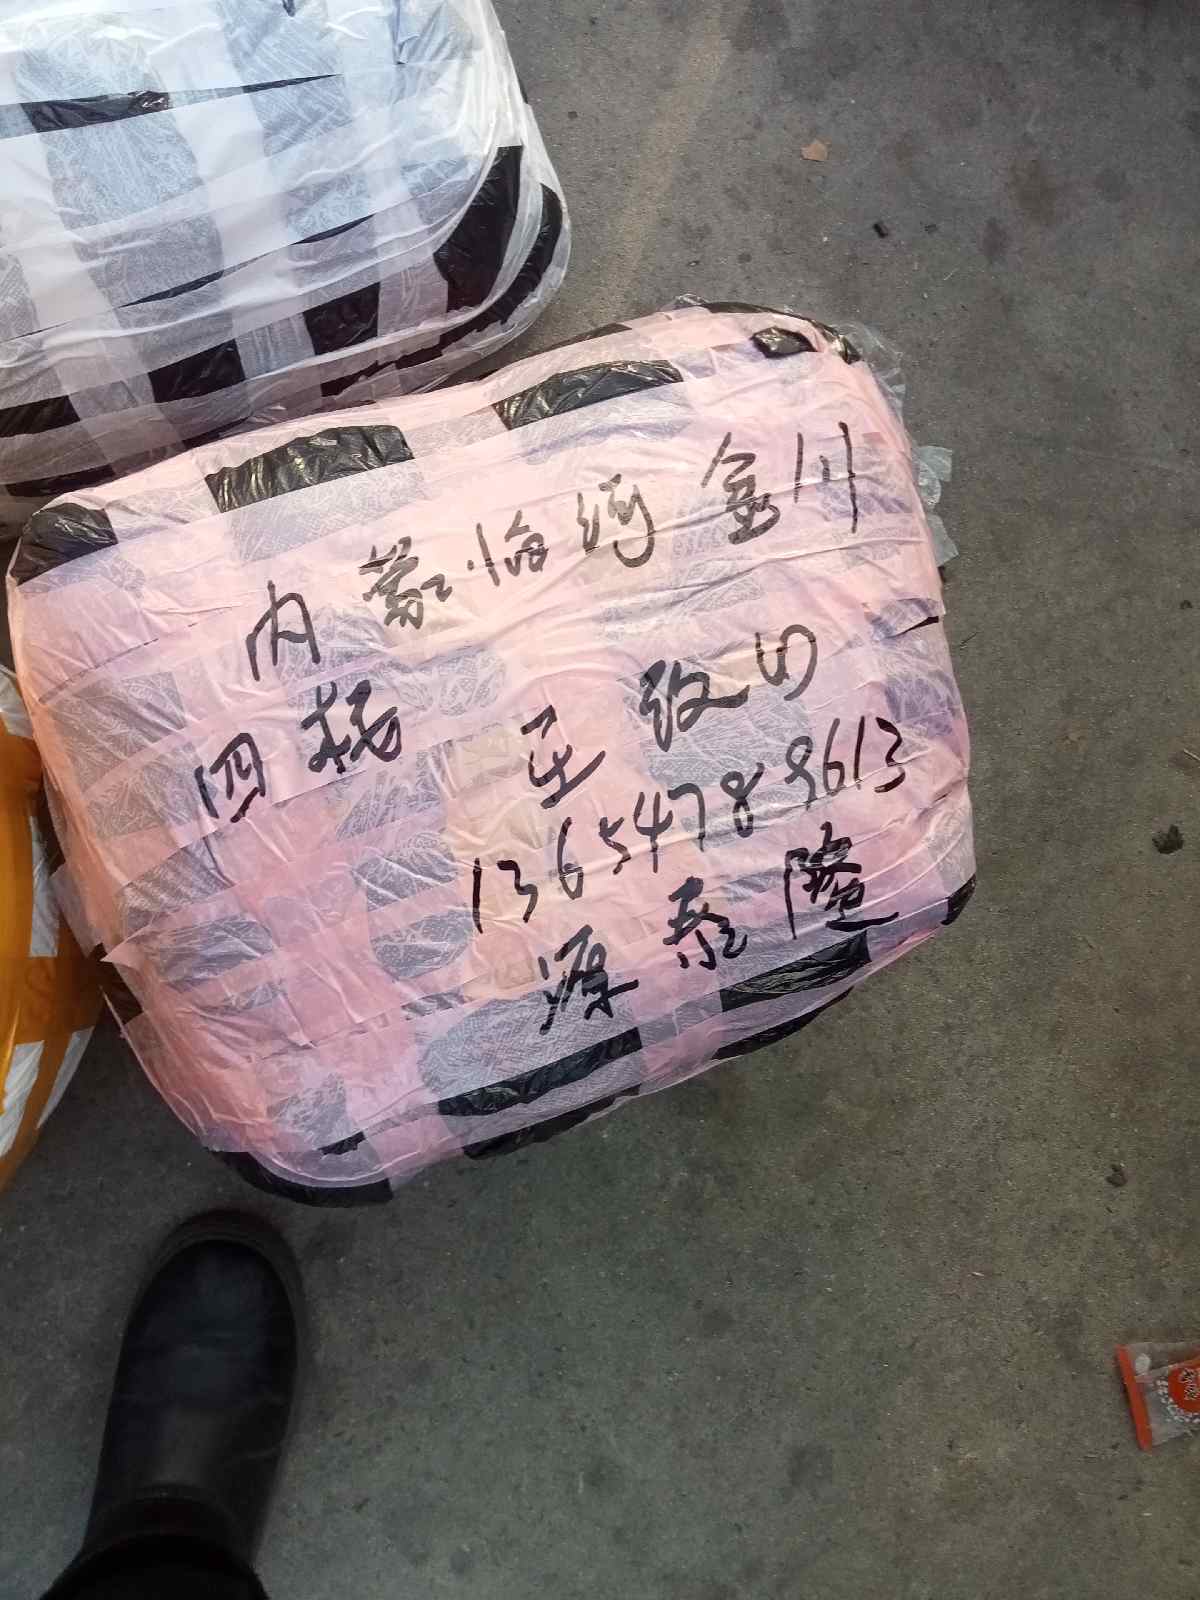 内蒙临河金川
四栋 王改
13654789613
源泰隆